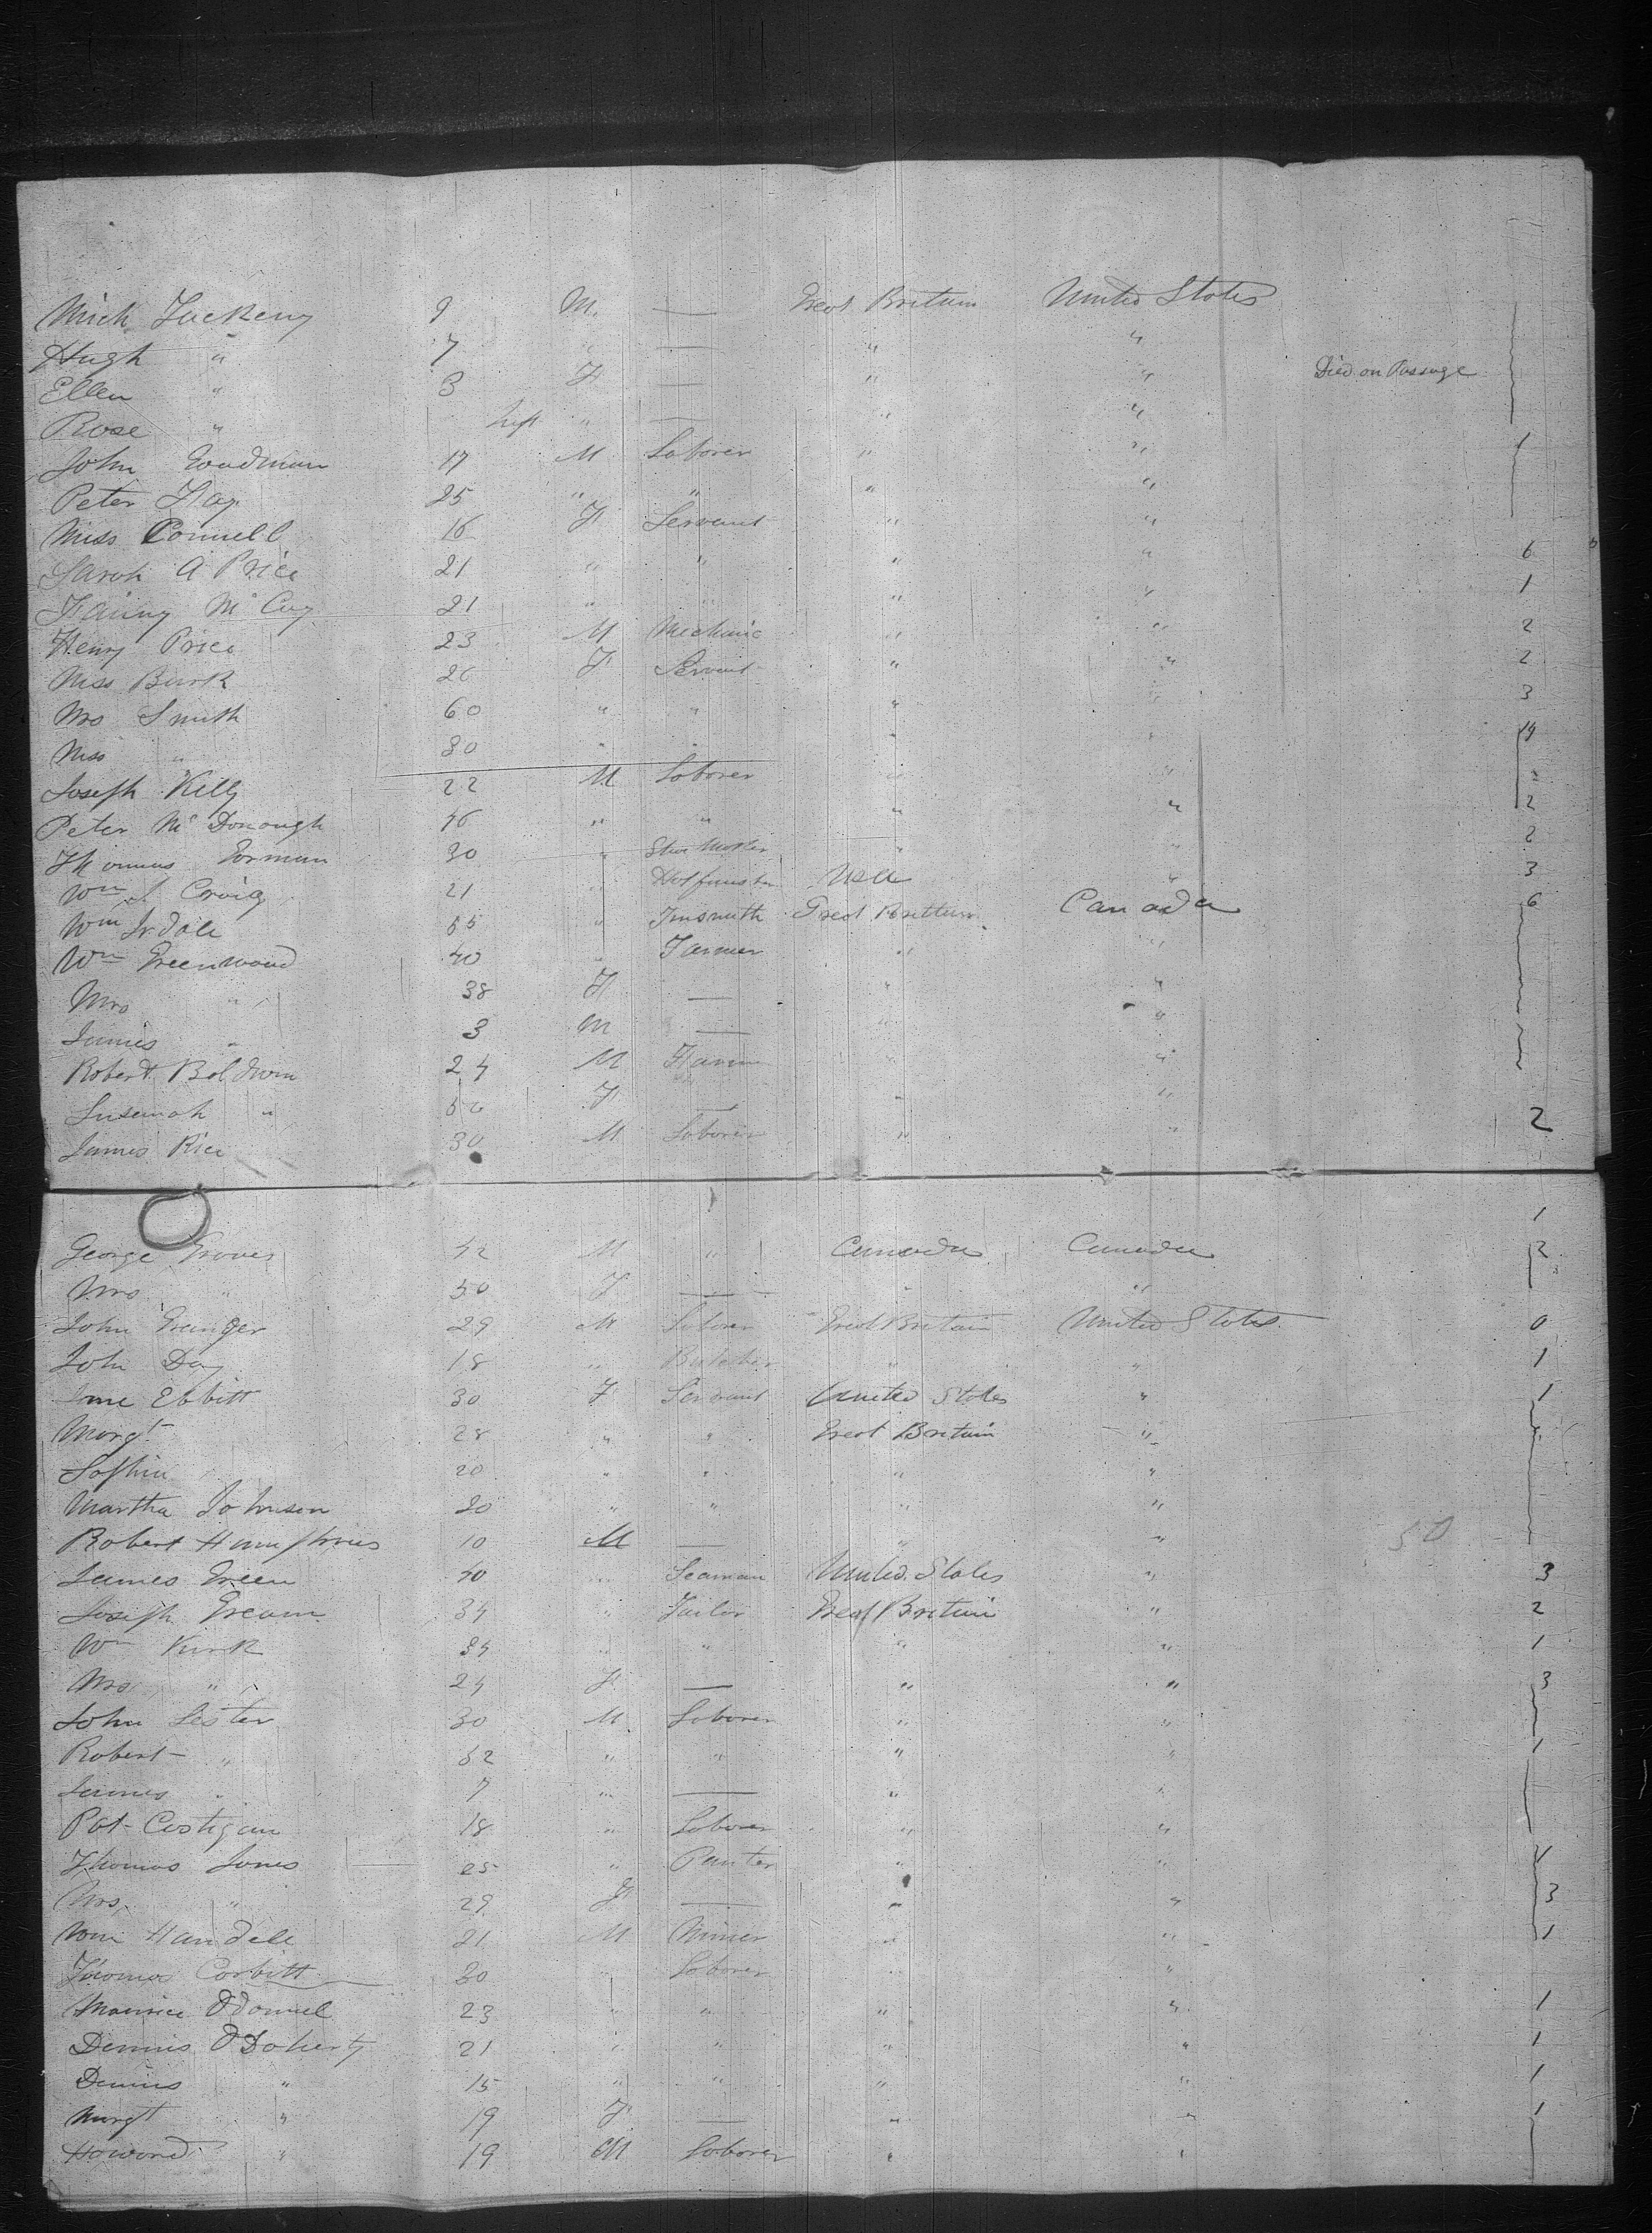 Mich Tuckeny 9 M. — Great Britain United States
Hugh " 7 " — " "
Ellen " 3 F " " Died on Passage
Rose " Inft " — " "
John Goodman 17 M Laborer " " 1
Peter Hay 25 " " " "
Miss Connell 16 F Servant " "
Sarah A Price 21 " " " " 6
Fanny McCuy 21 " " " " 1
Henry Price 23 M Mechanic " " 2
Miss Burk 26 F Servant " " 2
Mrs Smith 60 " " " " 3
Miss " 30 " " " " 14
Joseph Killy 22 M Laborer " "
Peter McDonough 46 " " " " 2
Thomas Gorman 30 " Shoe Maker " " 2
Wm J Craig 21 " USA " 3
Wm Irdale 55 " Tinsmith Great Brittain Canada 6
Wm Greenwood 40 " Farmer " "
Mrs " 38 F — " "
James " 3 M — " "
Robert Boldwin 24 M Farm " "
Susannah " 52 F — " "
James Rice 30 M Laborer " " 2
1
George Groves 42 M " Canada Canada 2
Mrs " 50 F — " "
John Granger 29 M Laborer Great Britain United States 0
John Day 18 " Butcher " " 1
Jane Ebbitt 30 F Servant United States " 1
Margt 28 " " Great Britain "
Sophia 20 " " " "
Martha Johnson 20 " " " "
Robert Humphries 10 M — " " 50
James Green 40 " Seaman United States " 3
Joseph Gream 34 " Tailor Great Britain " 2
Wm Kirk 34 " " " " 1
Mrs " 24 F — " " 3
John Lester 30 M Laborer " "
Robert " 52 " " " " 1
James " 7 " — " "
Pat Costigan 18 " Laborer " "
Thomas Jones 25 " Panter " "
Mrs " 29 F — " " 3
Wm Handell 21 M Miner " " 1
Thomas Corbitt 20 " Laborer " "
Maurice Odonnel 23 " " " " 1
Dennis ODoherty 21 " " " " 1
Dennis " 15 " " " " 1
Margt " 19 F — " " 1
Howard " 19 M Laborer " "